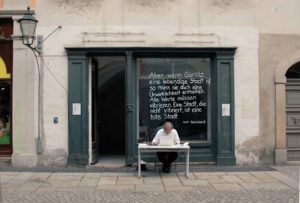 Aber wenn Görlitz
eine lebendige Stadt ist
so muss sie auch eine
Unwirklichkeit enthalten.
Alle Werte müssen
vibrieren. Eine Stadt, die
nicht vibriert, ist eine
tote Stadt.